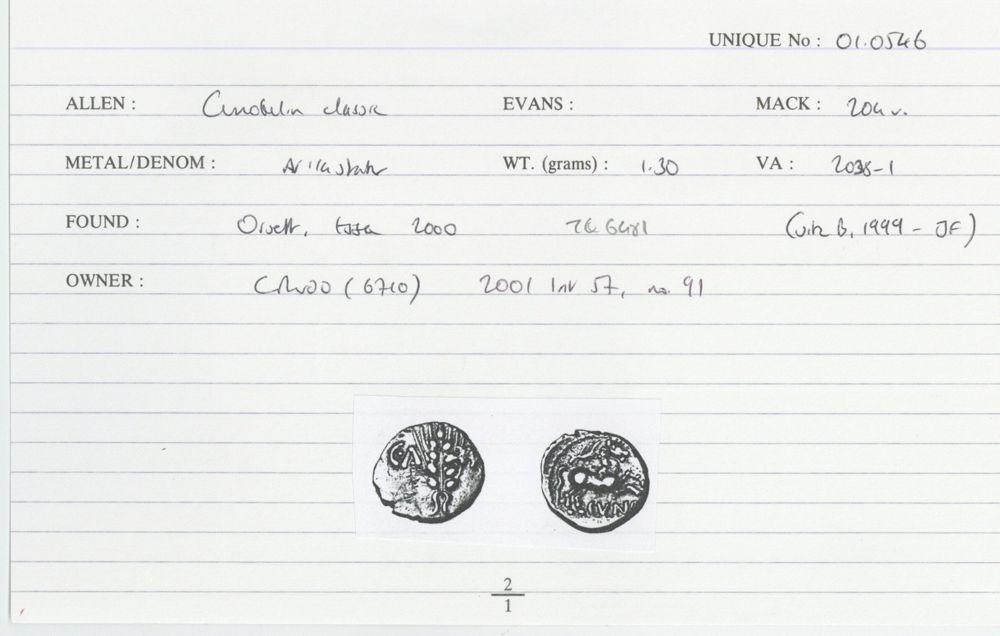 UNIQUE No : 01.0546
ALLEN : Cunobelin classic EVANS : MACK : 204 v.
METAL/DENOM : AV 1/4 stater WT. (grams) : 1.30 VA : 2038-1
FOUND : Orsett, Essex 2000 TQ 6481 1999 - JF)
OWNER : (6710) 2001 Inv 57, no. 91
CA
CVN
2
1